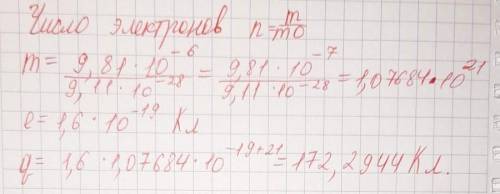 Число электронов n=m/m0
m= 9,81·10^-6/9,11·10^-28 = 9,81·10^-7/9,11·10^-28 = 1,07684·10^21
e=1,6·10^-19 Кл
q= 1,6·1,07684·10^-19+21=172,2944 Кл.